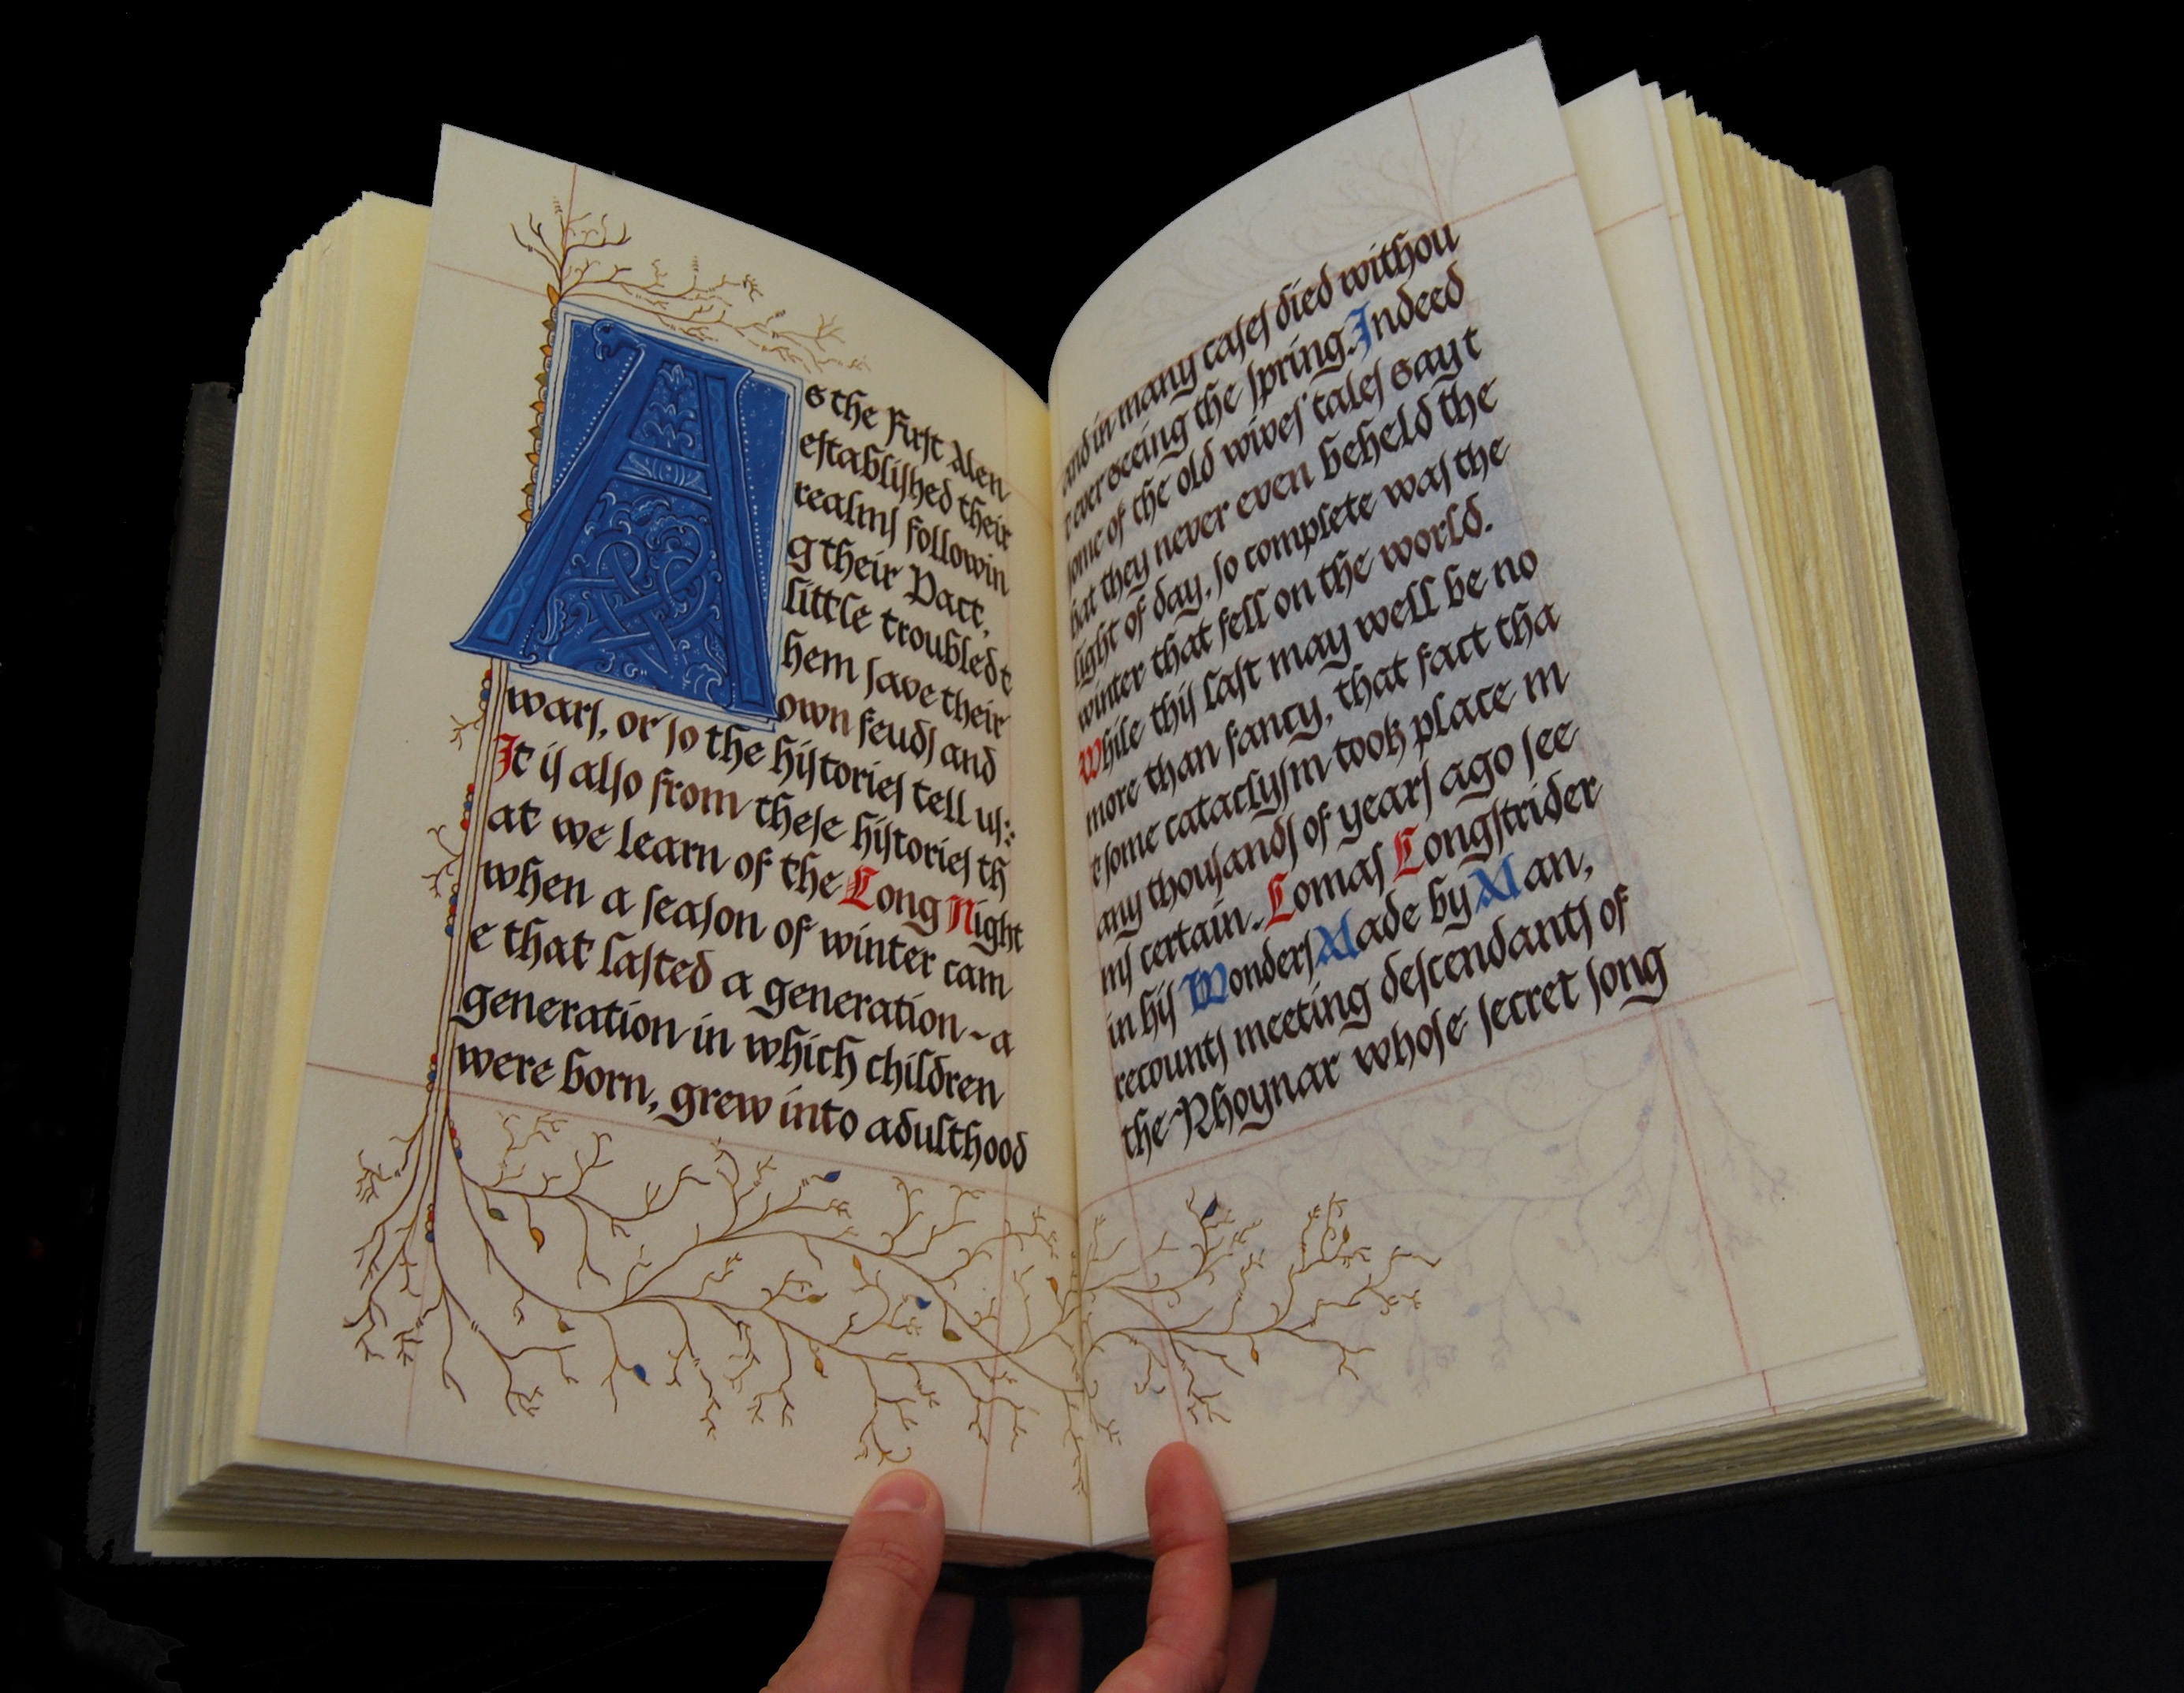 As the First Men
established their
realms followin
g their Pact,
little troubled t
hem save their
own feuds and
wars, or so the histories tell us:
It is also from these histories th
at we learn of the Long Night
when a season of winter cam
e that lasted a generation~a
generation in which children
were born, grew into adulthood
and in many cases died withou
t ever seeing the spring. Indeed
some of the old wives' tales say t
hat they never even beheld the
light of day, so complete was the
winter that fell on the world.
While this last may well be no
more than fancy, that fact tha
t some cataclysm took place m
any thousands of years ago see
ms certain. Lomas Longstrider
in his Wonders Made by Man,
recounts meeting descendants of
the Rhoynar whose secret song